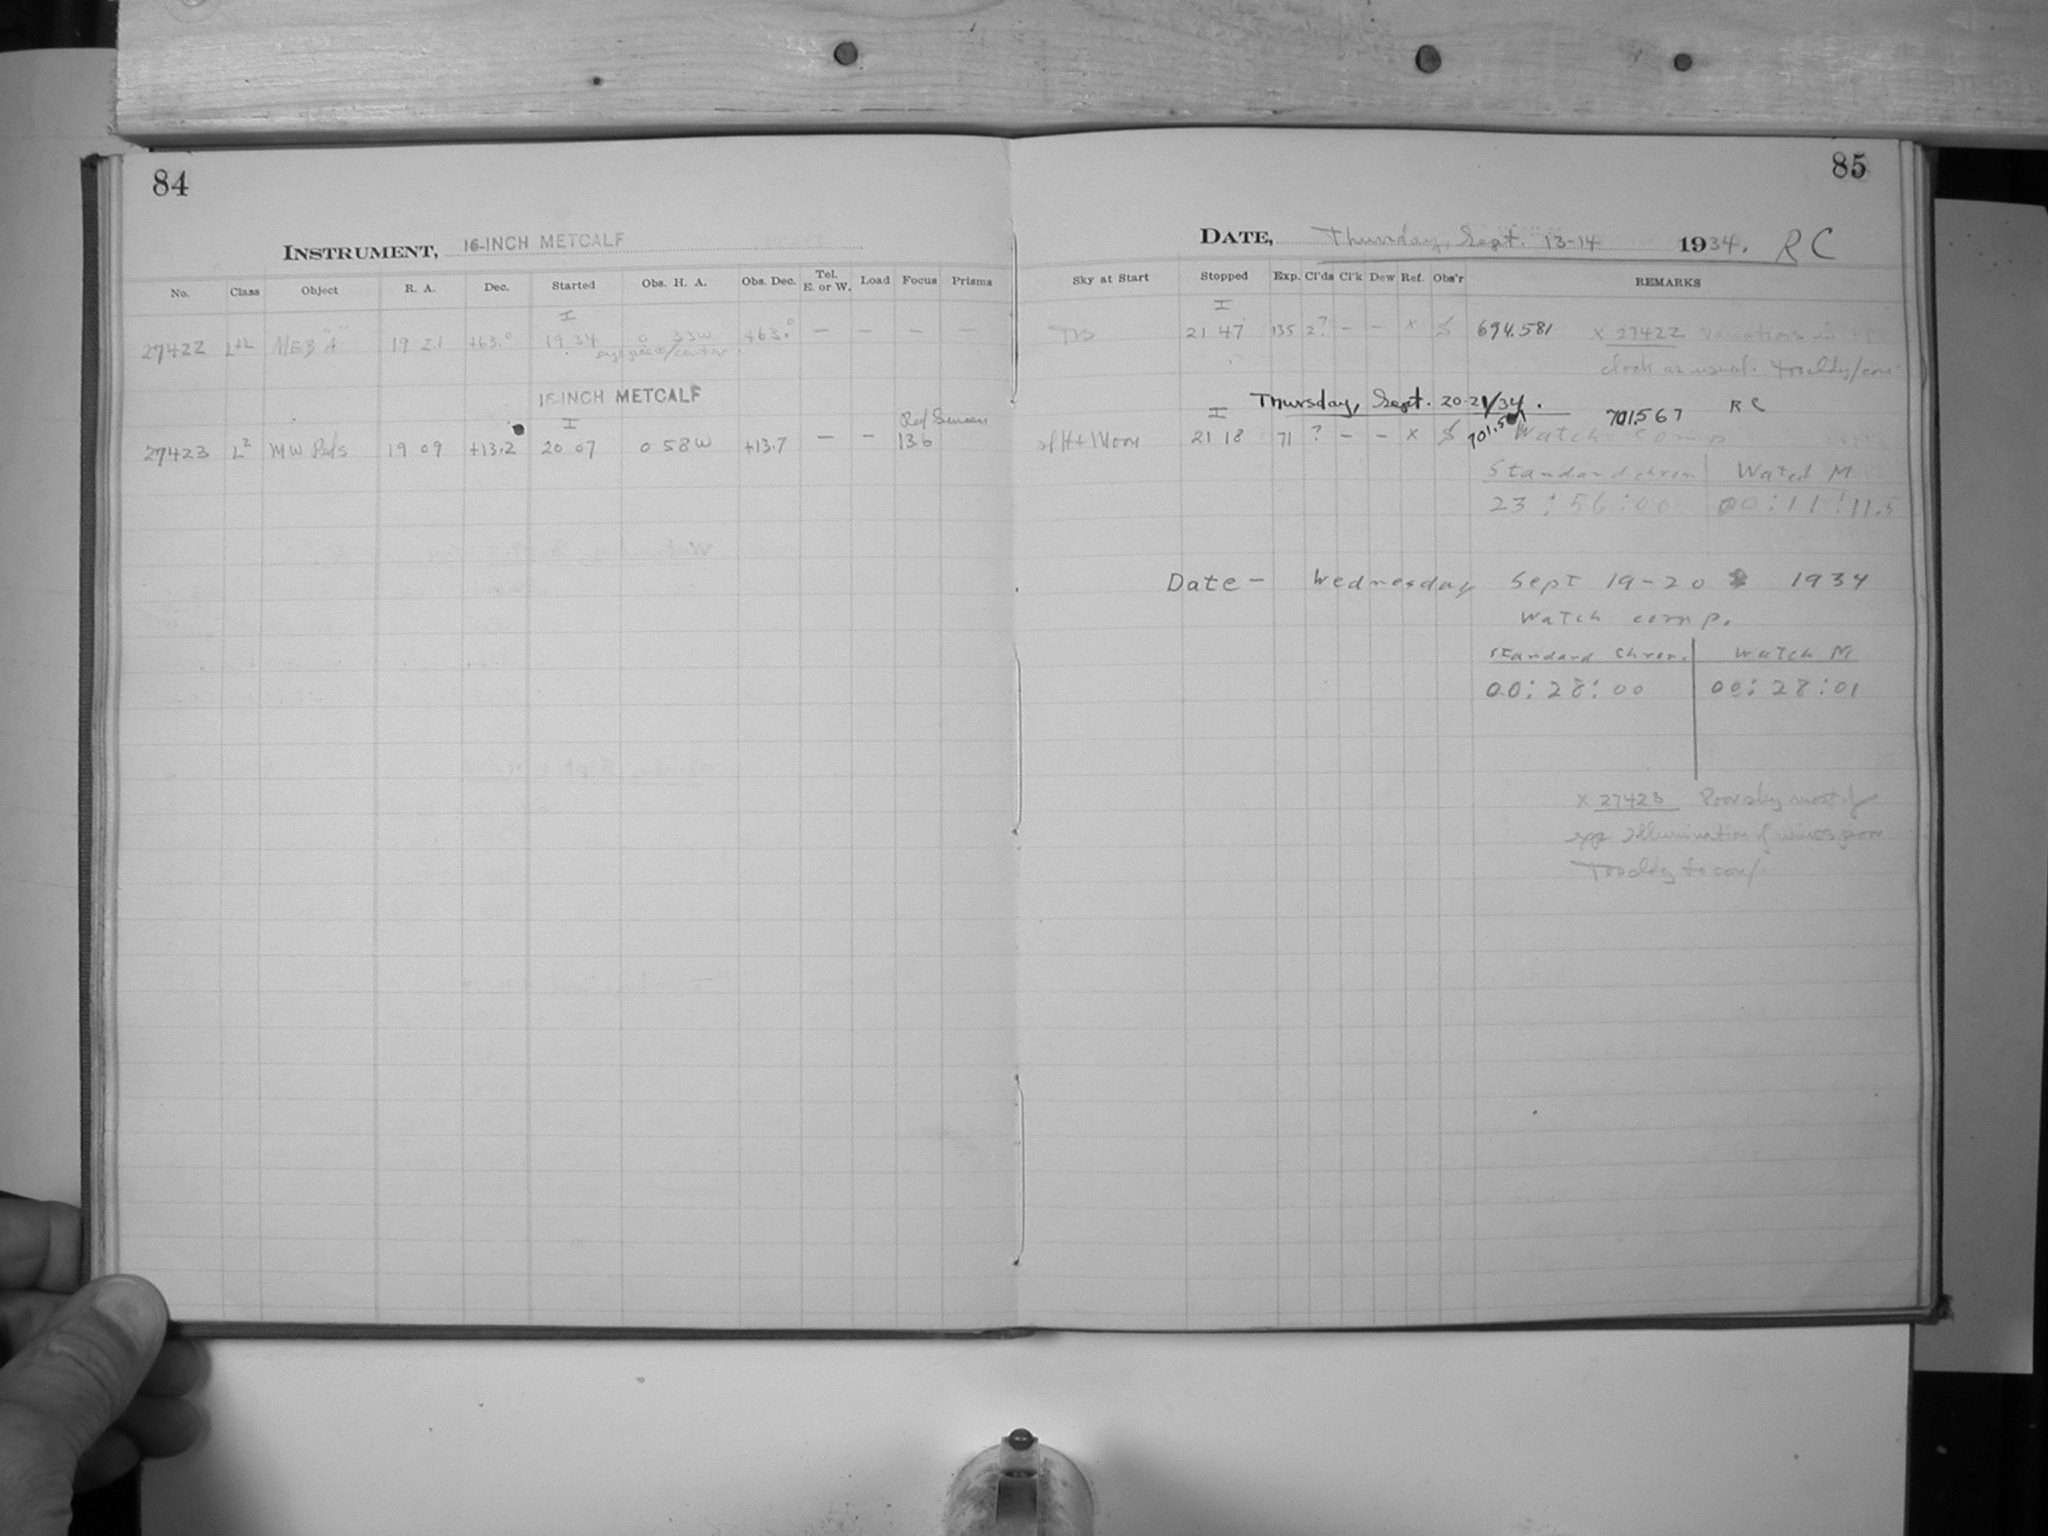 84
INSTRUMENT, 16-INCH METCALF
No. Class Object R. A. Dec. Started Obs. H. A. Obs. Dec. Tel. E. or W. Load Focus Prisms
I
27422 L+L 19 21 +63.° 19 34 0 33W +63.° — — — —
eyepiece/center
16-INCH METCALF
I
27423 L² MW 19 09 +13.2 20 07 0 58W +13.7 — — 13.6
85
DATE, Thursday, Sept. 13-14 1934. R C
Sky at Start Stopped Exp. Cl'ds Cl'k Dew Ref. Obs'r REMARKS
I
21 47 135 2? — — x 694.581 x 27422 variations in
clock as usual.
Thursday, Sept. 20-21/34. 701.567 R C
I
+ Moon 21 18 71 ? — — x Watch comp
Standard chron Watch M
23:56:00 00:11:11.5
Date — Wednesday Sept 19-20 1934
Watch comp.
Standard Chron. Watch M
00:28:00 00:28:01
x 27423 Poor sky most of
exp. Illumination of wires poor